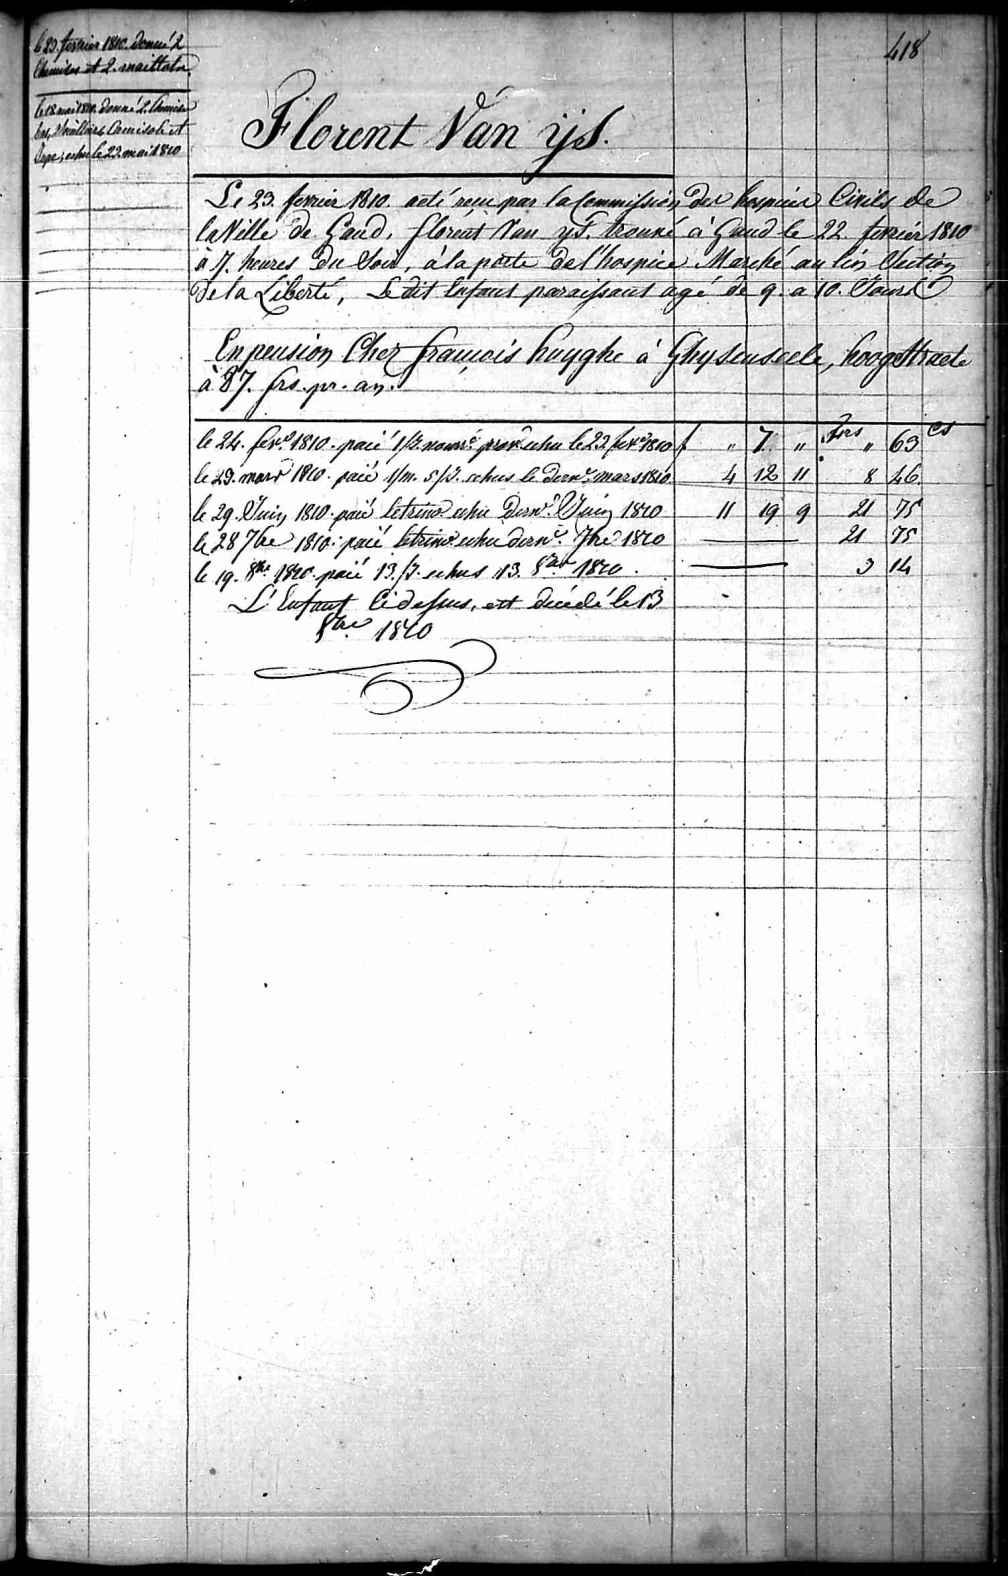 418
le 23. fevrier 1810. donné 2
Chemises et 2. maillots.
le 18 mai 1810. donné 2. Chemise
Camisole et
echu le 23. mai 1810
Florent Van ijs.
Le 23. fevrier 1810. a été recu par la Commission des hospices Civils de
la Ville de Gand, florent Van ijs. trouvé à Gand le 22 fevrier 1810
à 7. heures du Soir, à la porte de l'hospice Marché au lin Section
de la Liberté, Le dit Enfant paraissant agé de 9. a 10. Jours
En pension Chez francois huyghe à Ghysenseele, hoogstraete
à 87. frs. pr. an.
le 24. fevr. 1810. paié 1/3. echu le 23 fevr. 1810 f " 7 " frs " 63 cs
le 29. mars 1810. paié 1/m. 5/3. echus le dern. mars 1810 4 12 11 8 46
le 29. Juin 1810 paié le trim. echu dern. Juin 1810 11 19 9 21 75
le 28 7bre 1810. paié le trim. echu dern. 7bre 1810 21 75
le 19. 8bre 1810. paié 13./3. echus 13. 8bre 1810. 3 14
L'Enfant Ci dessus, est décédé le 13
8bre 1810